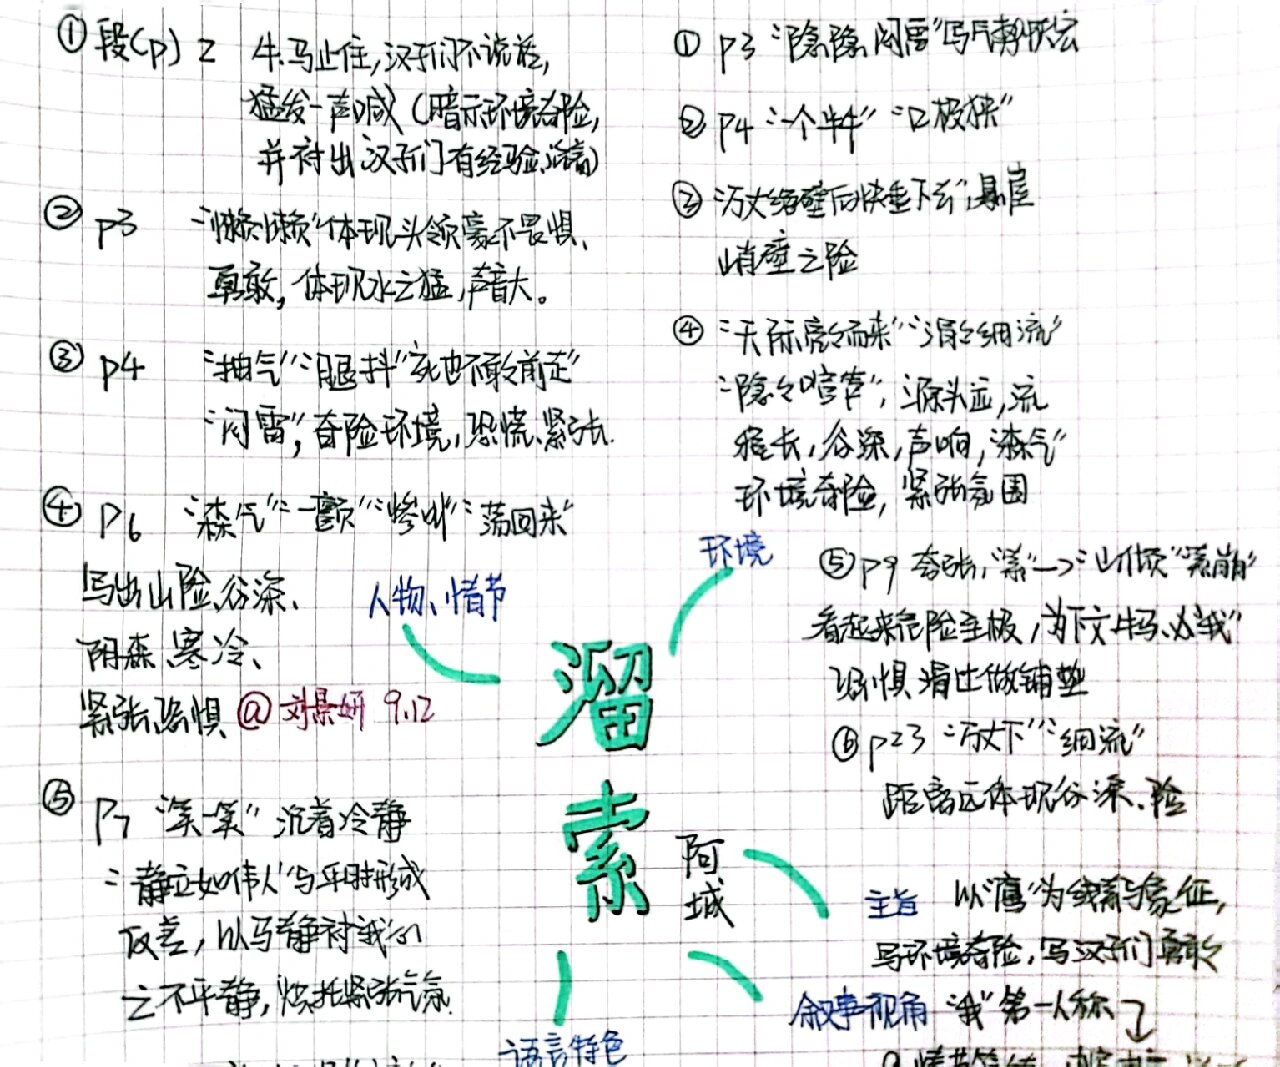 ①段(p) 2 牛马止住,汉子们不说话,
猛发一声喊(暗示环境奇险,
并衬出汉子们有经验
② p3 "懒懒"体现头领毫不畏惧、
勇敢,体现水之猛,声音大。
③ p4 "抽气""腿抖""死也不敢前走"
"闷雷",奇险环境,恐慌、紧张
④ P6 "森气""一颤""惨叫""荡回来"
写出山险、谷深、
阴森、寒冷、
紧张恐惧 @刘景妍 9.12
⑤ P7 "笑一笑" 沉着冷静
"静立如伟人"与平时形成
反差,以马静衬我们
之不平静,烘托紧张气氛
人物、情节
① p3 "隐隐闷雷"写气势
② P4 "一个""口极狭"
③ "万丈绝壁飞快垂下去",悬崖
峭壁之险
④ "天际亮亮而来""涓涓细流"
"隐隐喧声",源头远,流
程长,谷深,声响,"森气"
环境奇险,紧张氛围
环境
⑤ p9 夸张,"索"—>"山倾""索崩"
看起来危险至极,为下文牛马、"我"
恐惧 溜过做铺垫
⑥ p23 "万丈下""细流"
距离远体现谷深、险
溜
索
阿
城
主旨 以"鹰"为线索与象征,
写环境奇险,写汉子们勇敢
叙事视角 "我"第一人称
语言特色